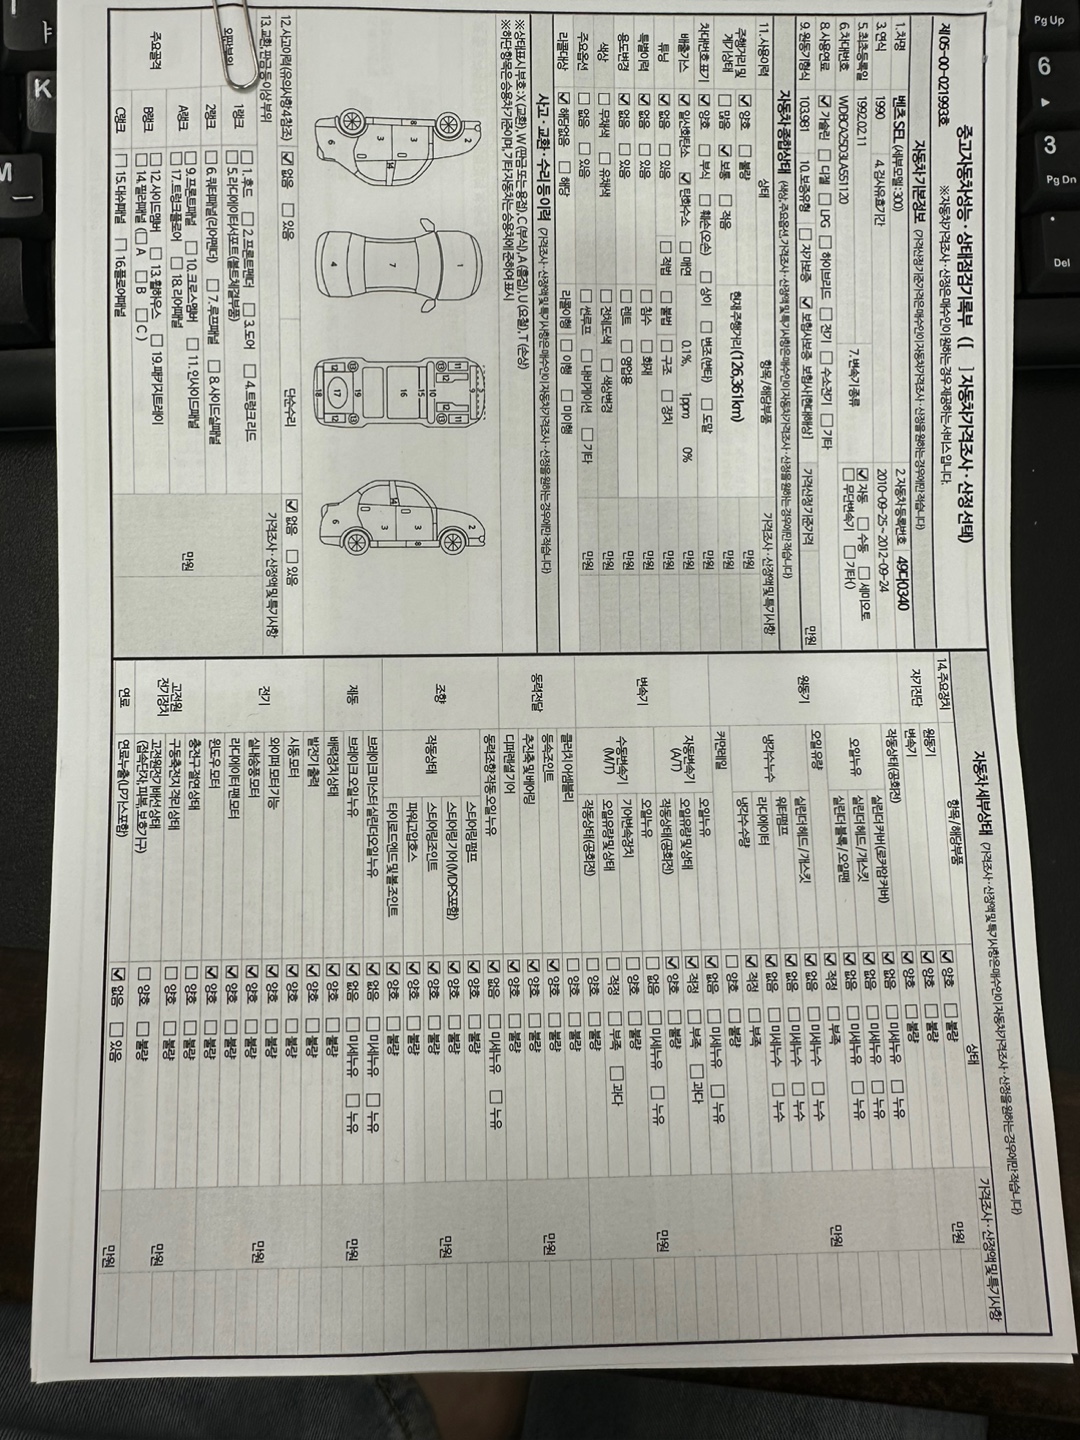 제05-00-021993호
중고자동차성능 · 상태점검기록부 ([ ] 자동차가격조사 · 산정 선택)
※ 자동차가격조사 · 산정은 매수인이 원하는 경우 제공하는 서비스 입니다.
자동차 기본정보 (가격산정 기준가격은 매수인이 자동차가격조사 · 산정을 원하는 경우에만 적습니다)
1. 차명 벤츠 SEL (세부모델 : 300) 2. 자동차등록번호 49다0340
3. 연식 1990 4. 검사유효기간 2010-09-25 ~ 2012-09-24
5. 최초등록일 1992.02.11 7. 변속기종류 ☑ 자동 ☐ 수동 ☐ 세미오토
6. 차대번호 WDBCA25D3LA551120 ☐ 무단변속기 ☐ 기타()
8. 사용연료 ☑ 가솔린 ☐ 디젤 ☐ LPG ☐ 하이브리드 ☐ 전기 ☐ 수소전기 ☐ 기타
9. 원동기형식 103.981 10. 보증유형 ☐ 자가보증 ☑ 보험사보증 보험사[현대해상] 가격산정 기준가격 만원
자동차 종합상태 (색상, 주요옵션, 가격조사 · 산정액 및 특기사항은 매수인이 자동차가격조사 · 산정을 원하는 경우에만 적습니다)
11. 사용이력 상태 항목 / 해당부품 가격조사 · 산정액 및 특기사항
주행거리 및 계기상태 ☑ 양호 ☐ 불량 만원
☐ 많음 ☑ 보통 ☐ 적음 현재 주행거리 (126,361km) 만원
차대번호 표기 ☑ 양호 ☐ 부식 ☐ 훼손(오손) ☐ 상이 ☐ 변조(변타) ☐ 도말 만원
배출가스 ☑ 일산화탄소 ☑ 탄화수소 ☐ 매연 0.1%, 1ppm 0% 만원
튜닝 ☑ 없음 ☐ 있음 ☐ 적법 ☐ 불법 ☐ 구조 ☐ 장치 만원
특별이력 ☑ 없음 ☐ 있음 ☐ 침수 ☐ 화재 만원
용도변경 ☑ 없음 ☐ 있음 ☐ 렌트 ☐ 영업용 만원
색상 ☐ 무채색 ☐ 유채색 ☐ 전체도색 ☐ 색상변경 만원
주요옵션 ☐ 없음 ☐ 있음 ☐ 썬루프 ☐ 내비게이션 ☐ 기타 만원
리콜대상 ☑ 해당없음 ☐ 해당 리콜이행 ☐ 이행 ☐ 미이행
사고 · 교환 · 수리 등 이력 (가격조사 · 산정액 및 특기사항은 매수인이 자동차가격조사 · 산정을 원하는 경우에만 적습니다)
※ 상태표시 부호 : X (교환), W (판금 또는 용접), C (부식), A (흠집), U (요철), T (손상)
※ 하단 항목은 승용차 기준이며, 기타 자동차는 승용차에 준하여 표시
12. 사고이력 (유의사항 4 참조) ☑ 없음 ☐ 있음 단순수리 ☑ 없음 ☐ 있음
13. 교환, 판금 등 이상 부위 가격조사 · 산정액 및 특기사항
외판부위 1랭크 ☐ 1. 후드 ☐ 2. 프론트펜더 ☐ 3. 도어 ☐ 4. 트렁크 리드
☐ 5. 라디에이터서포트(볼트체결부품)
2랭크 ☐ 6. 쿼터패널(리어펜더) ☐ 7. 루프패널 ☐ 8. 사이드실패널
주요골격 A랭크 ☐ 9. 프론트패널 ☐ 10. 크로스멤버 ☐ 11. 인사이드패널 만원
☐ 17. 트렁크플로어 ☐ 18. 리어패널
B랭크 ☐ 12. 사이드멤버 ☐ 13. 휠하우스 ☐ 19. 패키지트레이
☐ 14. 필러패널 (☐ A ☐ B ☐ C )
C랭크 ☐ 15. 대쉬패널 ☐ 16. 플로어패널
자동차 세부상태 (가격조사 · 산정액 및 특기사항은 매수인이 자동차가격조사 · 산정을 원하는 경우에만 적습니다)
14. 주요장치 항목 / 해당부품 상태 가격조사 · 산정액 및 특기사항
자기진단 원동기 ☑ 양호 ☐ 불량 만원
변속기 ☑ 양호 ☐ 불량
원동기 작동상태(공회전) ☑ 양호 ☐ 불량 만원
오일누유 실린더 커버(로커암 커버) ☑ 없음 ☐ 미세누유 ☐ 누유
실린더 헤드 / 개스킷 ☑ 없음 ☐ 미세누유 ☐ 누유
실린더 블록 / 오일팬 ☑ 없음 ☐ 미세누유 ☐ 누유
오일 유량 ☑ 적정 ☐ 부족
냉각수누수 실린더 헤드 / 개스킷 ☑ 없음 ☐ 미세누수 ☐ 누수
워터펌프 ☑ 없음 ☐ 미세누수 ☐ 누수
라디에이터 ☑ 없음 ☐ 미세누수 ☐ 누수
냉각수 수량 ☑ 적정 ☐ 부족
커먼레일 ☐ 양호 ☐ 불량
변속기 자동변속기(A/T) 오일누유 ☑ 없음 ☐ 미세누유 ☐ 누유 만원
오일유량 및 상태 ☑ 적정 ☐ 부족 ☐ 과다
작동상태(공회전) ☑ 양호 ☐ 불량
수동변속기(M/T) 오일누유 ☐ 없음 ☐ 미세누유 ☐ 누유
기어변속장치 ☐ 양호 ☐ 불량
오일유량 및 상태 ☐ 적정 ☐ 부족 ☐ 과다
작동상태(공회전) ☐ 양호 ☐ 불량
동력전달 클러치 어셈블리 ☐ 양호 ☐ 불량 만원
등속조인트 ☑ 양호 ☐ 불량
추진축 및 베어링 ☑ 양호 ☐ 불량
디퍼렌셜 기어 ☑ 양호 ☐ 불량
조향 동력조향 작동 오일 누유 ☑ 없음 ☐ 미세누유 ☐ 누유 만원
작동상태 스티어링 펌프 ☑ 양호 ☐ 불량
스티어링 기어(MDPS포함) ☑ 양호 ☐ 불량
스티어링조인트 ☑ 양호 ☐ 불량
파워고압호스 ☑ 양호 ☐ 불량
타이로드엔드 및 볼 조인트 ☑ 양호 ☐ 불량
제동 브레이크 마스터 실린더오일 누유 ☑ 없음 ☐ 미세누유 ☐ 누유 만원
브레이크 오일 누유 ☑ 없음 ☐ 미세누유 ☐ 누유
배력장치 상태 ☑ 양호 ☐ 불량
전기 발전기 출력 ☑ 양호 ☐ 불량 만원
시동 모터 ☑ 양호 ☐ 불량
와이퍼 모터 기능 ☑ 양호 ☐ 불량
실내송풍 모터 ☑ 양호 ☐ 불량
라디에이터 팬 모터 ☑ 양호 ☐ 불량
윈도우 모터 ☑ 양호 ☐ 불량
고전원전기장치 충전구 절연 상태 ☐ 양호 ☐ 불량 만원
구동축전지 격리 상태 ☐ 양호 ☐ 불량
고전원전기배선 상태 (접속단자, 피복, 보호기구) ☐ 양호 ☐ 불량
연료 연료누출(LP가스포함) ☑ 없음 ☐ 있음 만원
Pg Up
6
3
Pg Dn
Del
K
M